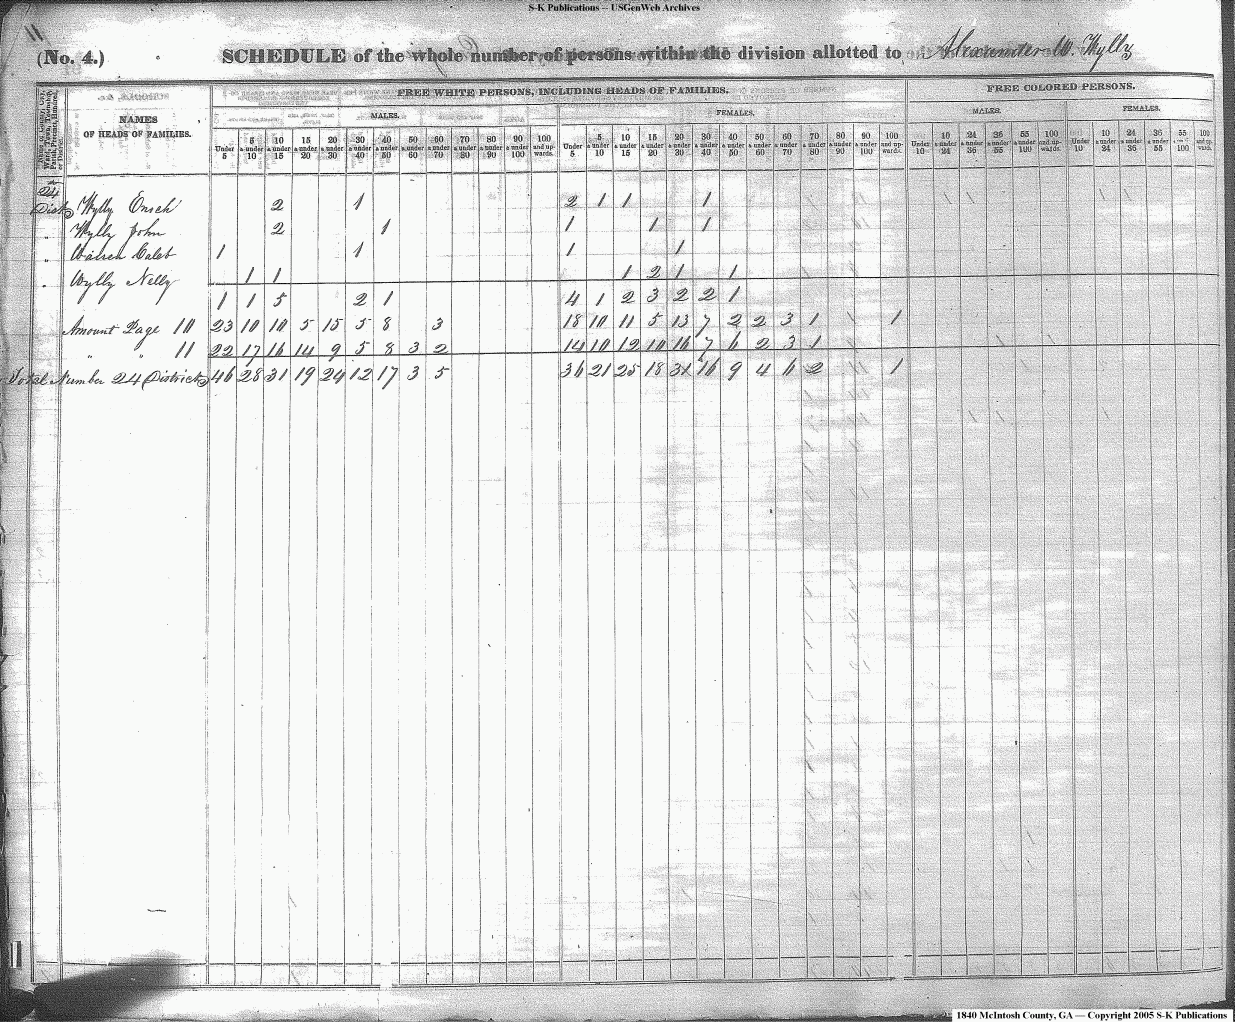 S-K Publications – USGenWeb Archives
11
(No. 4.) SCHEDULE of the whole number of persons within the division allotted to Alexander W. Wylly
FREE WHITE PERSONS, INCLUDING HEADS OF FAMILIES. FREE COLORED PERSONS.
NAMES OF HEADS OF FAMILIES.
MALES. FEMALES. MALES. FEMALES.
Under 5 5 & under 10 10 & under 15 15 & under 20 20 & under 30 30 & under 40 40 & under 50 50 & under 60 60 & under 70 70 & under 80 80 & under 90 90 & under 100 100 and upwards. Under 5 5 & under 10 10 & under 15 15 & under 20 20 & under 30 30 & under 40 40 & under 50 50 & under 60 60 & under 70 70 & under 80 80 & under 90 90 & under 100 100 and upwards. Under 10 10 & under 24 24 & under 36 36 & under 55 55 & under 100 100 and upwards. Under 10 10 & under 24 24 & under 36 36 & under 55 55 & under 100 100 and upwards.
24
Dist Wylly 2 1 2 1 1 1
" Wylly John 2 1 1 1 1
" Warren Caleb 1 1 1 1
" Wylly Nelly 1 1 1 2 1 1
1 1 5 2 1 4 1 2 3 2 2 1
Amount Page 10 23 10 10 5 15 5 8 3 18 10 11 5 13 7 2 2 3 1 1
" " 11 22 17 16 14 9 5 8 3 2 14 10 12 10 16 7 6 2 3 1
Total Number 24 District 46 28 31 19 24 12 17 3 5 36 21 25 18 31 16 9 4 6 2 1
1840 McIntosh County, GA — Copyright 2005 S-K Publications